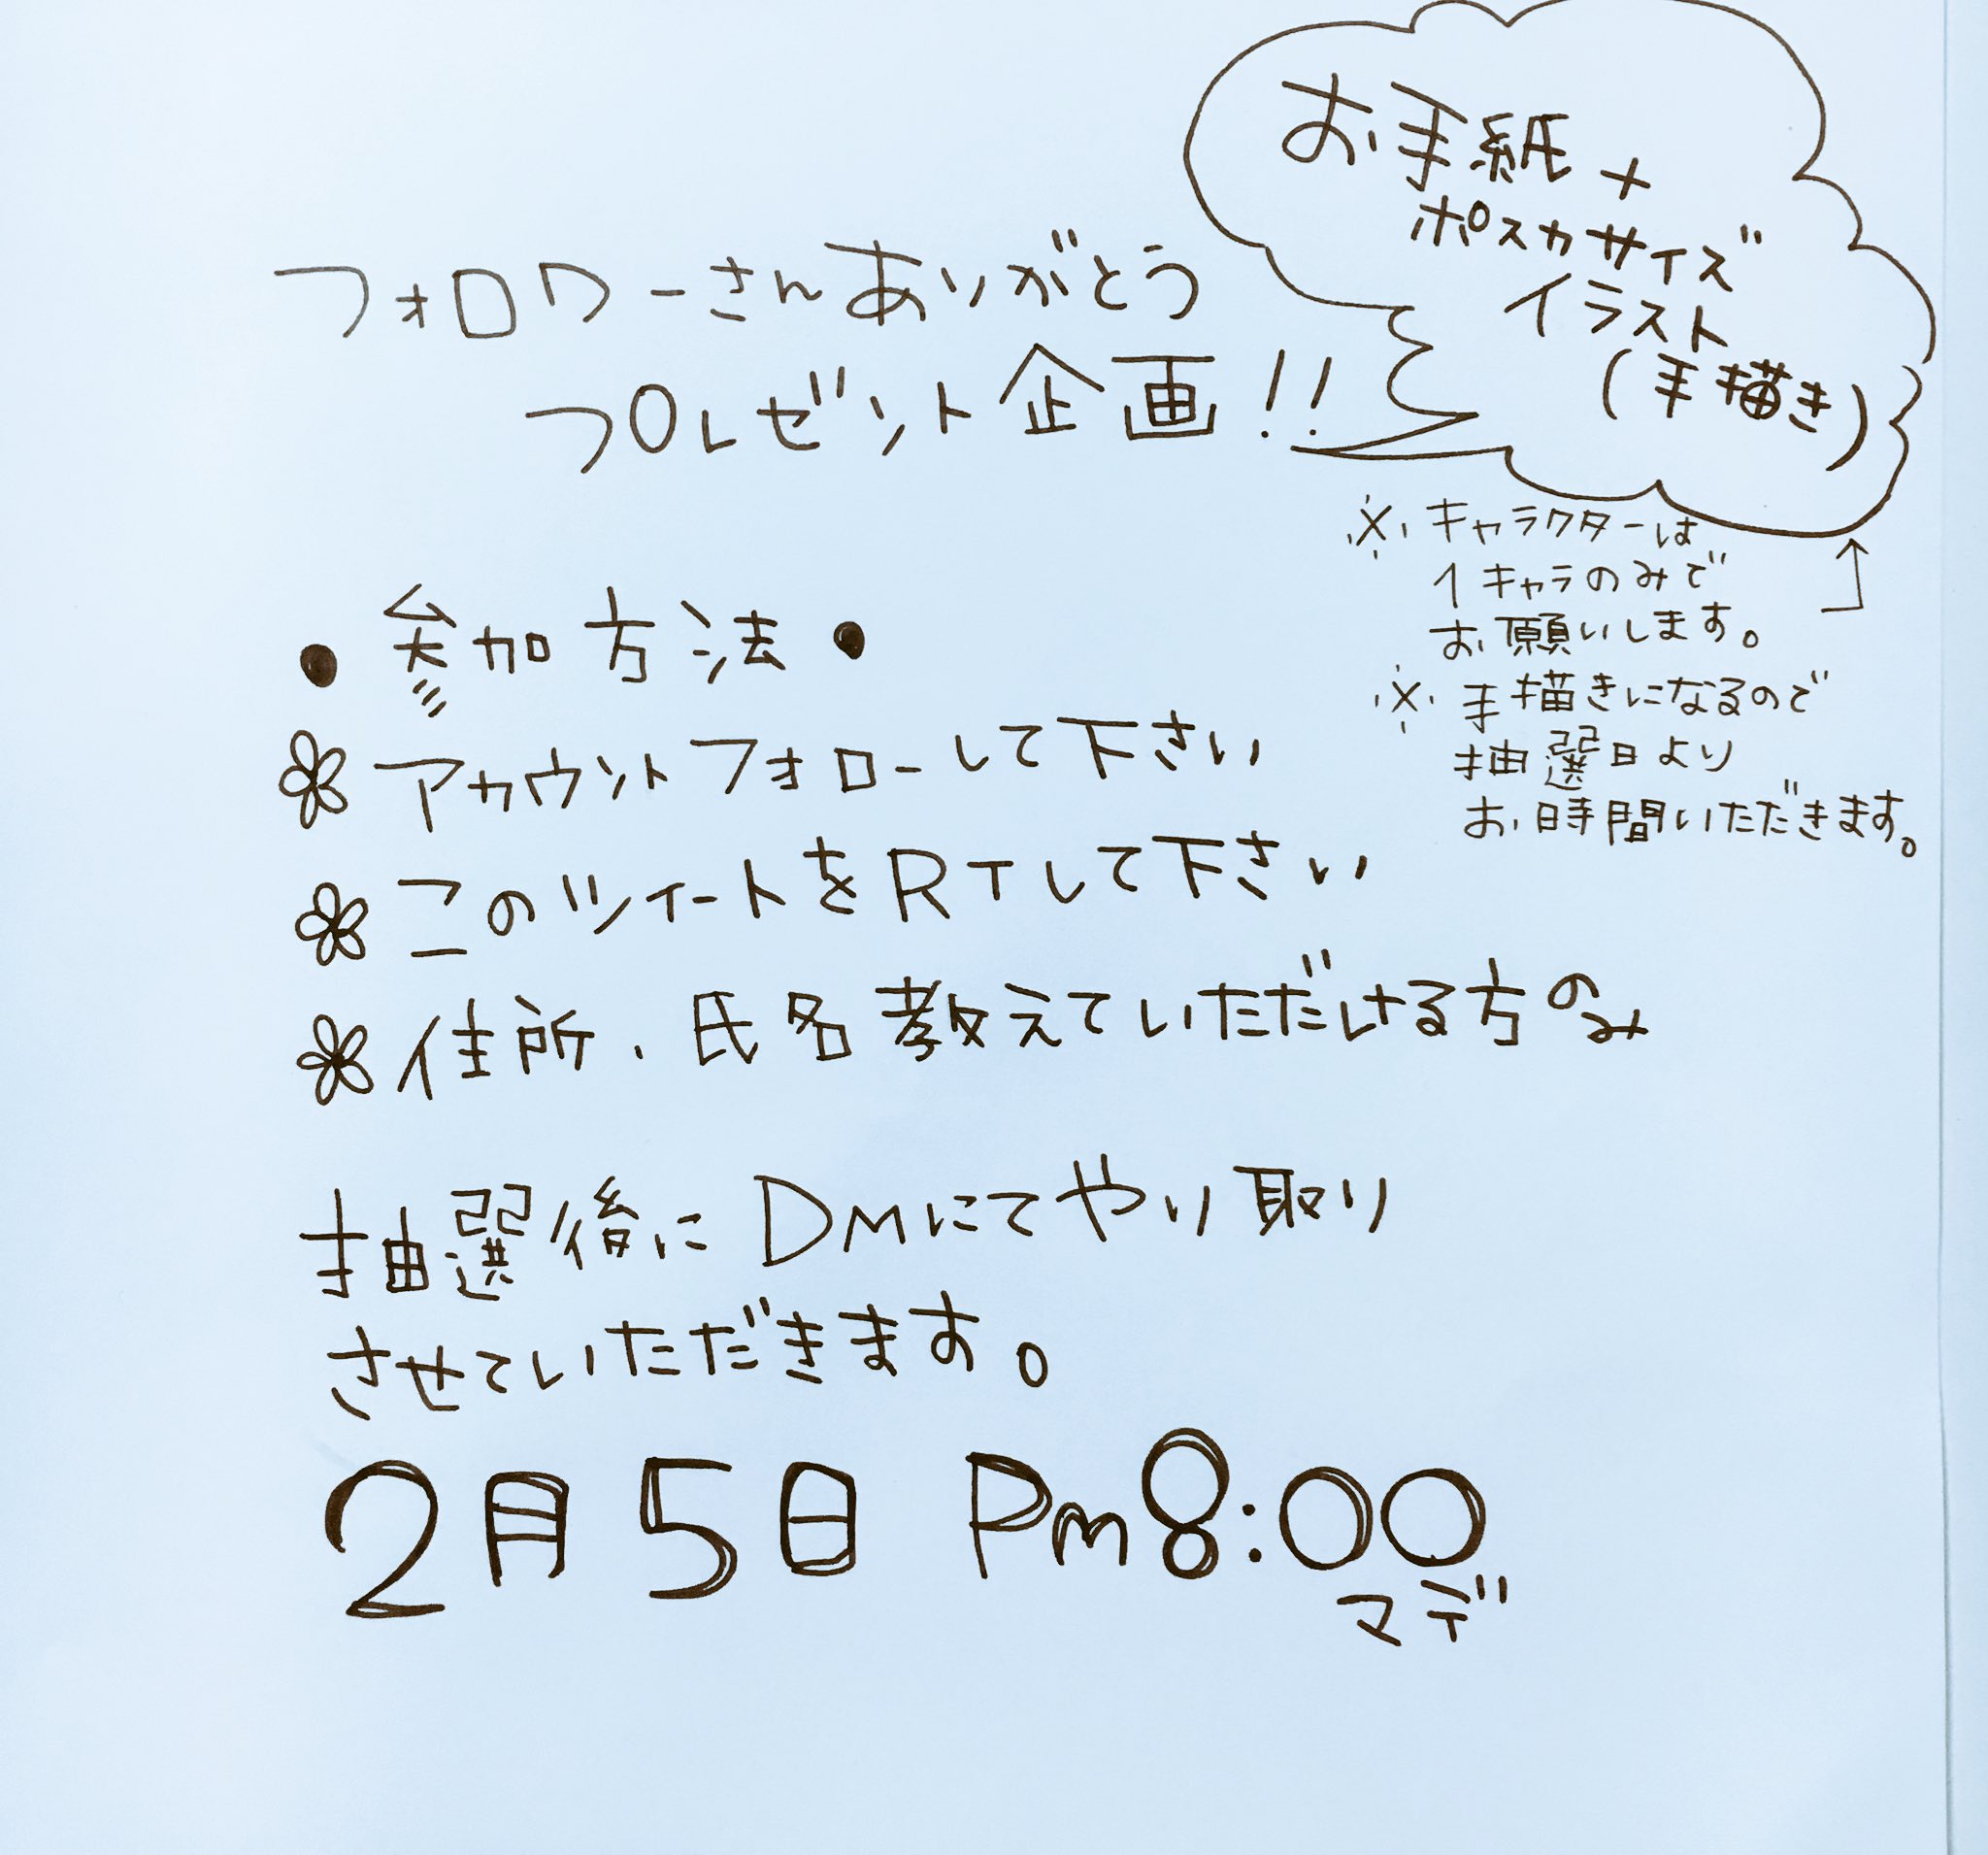 フォロワーさんありがとう
プレゼント企画!!
お手紙+
ポスカサイズ
イラスト
(手描き)
※キャラクターは
1キャラのみで
お願いします。
※手描きになるので
抽選日より
お時間いただきます。
●参加方法●
アカウントフォローして下さい
このツイートをRTして下さい
住所、氏名教えていただける方のみ
抽選後にDMにてやり取り
させていただきます。
2月5日 Pm8:00
マデ